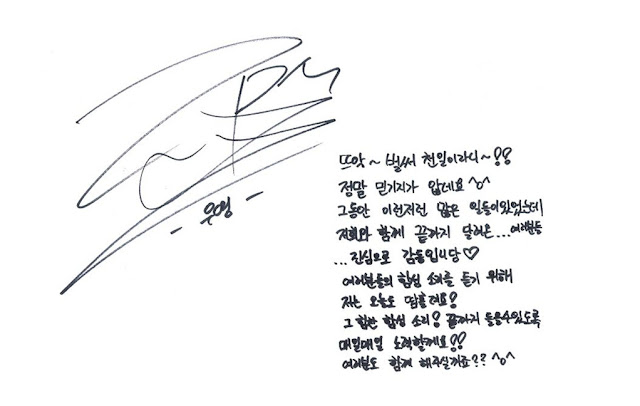 - 우영 -
뜨앗~ 벌써 천일이라니~!!
정말 믿기지가 않네요 ^o^
그동안 이런저런 많은 일들이 있었는데
저희와 함께 끝까지 달려온...여러분들
...진심으로 감동입니당♡
여러분들의 함성 소리를 듣기 위해
저는 오늘도
그 힘찬 함성 소리! 끝까지 들을 수 있도록
매일매일 노력할께요!!
여러분도 함께 해주실꺼죠?? ^o^